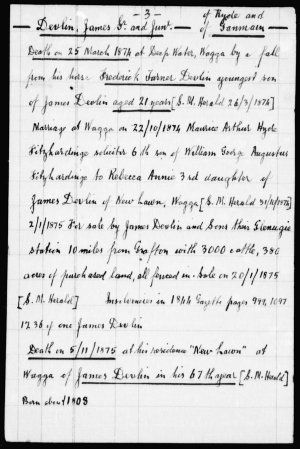 - 3 -
Devlin, James Sr. and Junr. of Ryde and of Ganmain
Death on 25 March 1874 at Deep Water, Wagga by a fall
from his horse Frederick Turner Devlin youngest son
of James Devlin aged 21 years [S. M. Herald 26/3/1874]
Marriage at Wagga on 22/10/1874 Maurice Arthur Hyde
Fitzhardinge solicitor 6th son of William George Augustus
Fitzhardinge to Rebecca Annie 3rd daughter of
James Devlin of New Lawn, Wagga [S. M. Herald 1874]
2/1/1875 For sale by James Devlin and Sons their Glenugie
station 10 miles from Grafton with 3000 cattle, 386
acres of purchased land, all fenced in. Sale on 20/1/1875
[S. M. Herald] Insolvencies in 1844 Gazette pages 1097
1236 of one James Devlin
Death on 5/11/1875 at his residence "New Lawn" at
Wagga of James Devlin in his 67th year [S. M. Herald]
Born about 1808